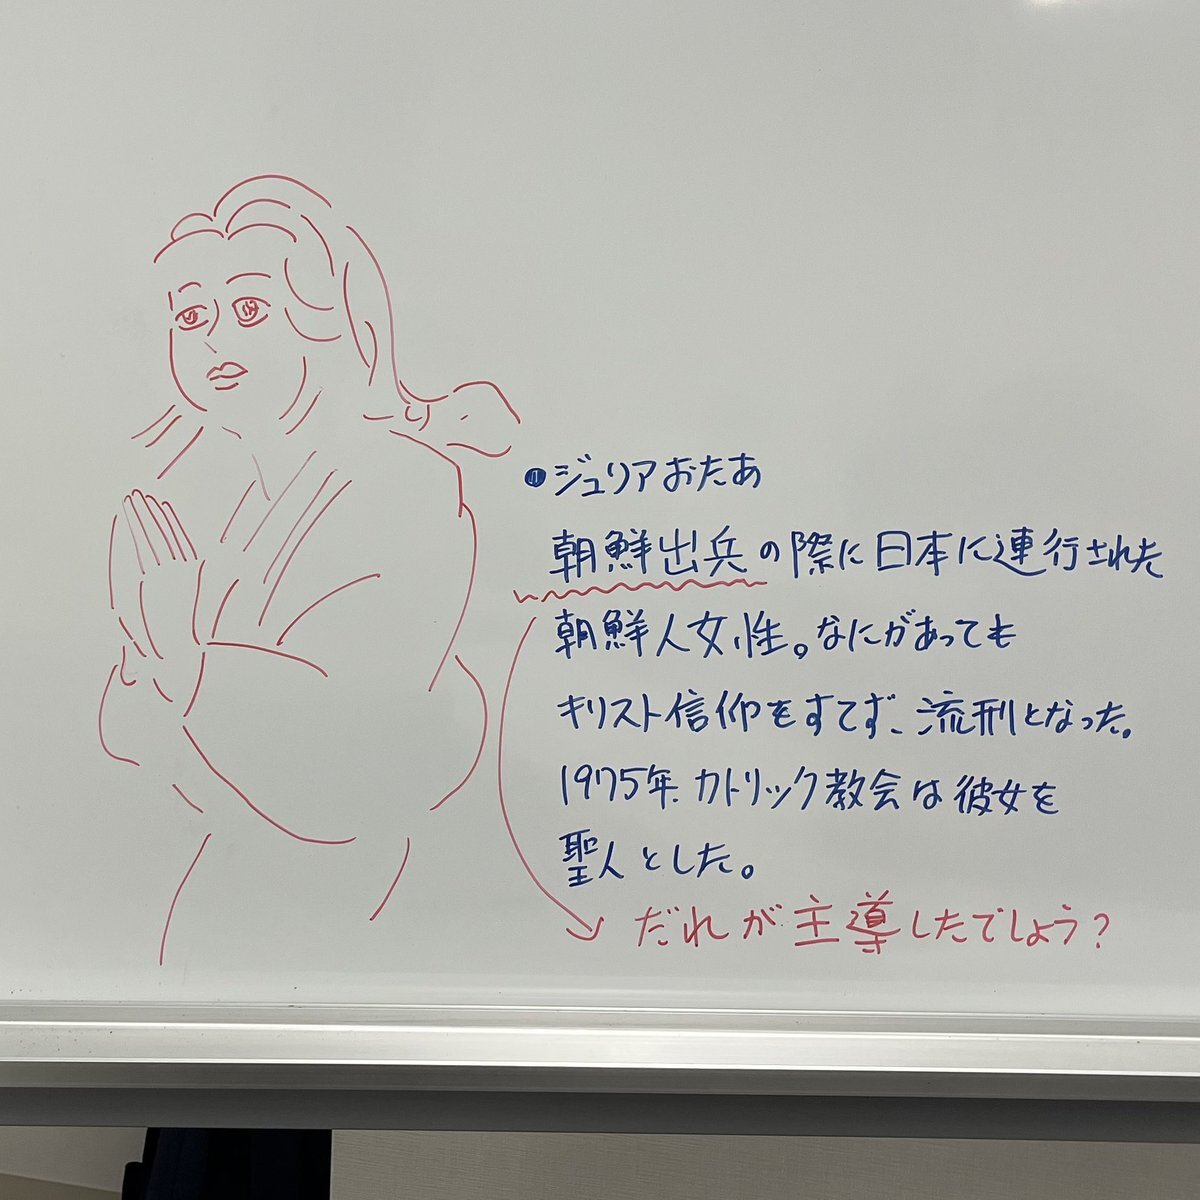 ジュリアおたあ
朝鮮出兵の際に日本に連行された
朝鮮人女性。なにがあっても
キリスト信仰をすてず、流刑となった。
1975年、カトリック教会は彼女を
聖人とした。
だれが主導したでしょう?